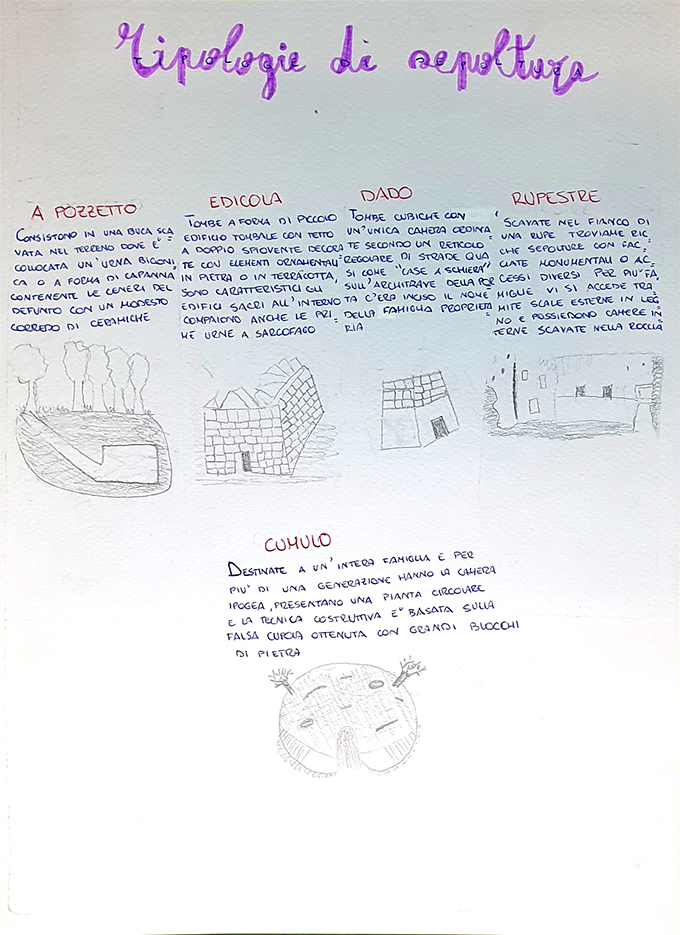 Tipologie di sepoltura
TIPOLOGIE DI SEPOLTURA
A POZZETTO
CONSISTONO IN UNA BUCA SCA
VATA NEL TERRENO DOVE E'
COLLOCATA UN'URNA BICONI
CA O A FORMA DI CAPANNA
CONTENENTE LE CENERI DEL
DEFUNTO CON UN MODESTO
CORREDO DI CERAMICHE
EDICOLA
TOMBE A FORMA DI PICCOLO
EDIFICIO TOMBALE CON TETTO
A DOPPIO SPIOVENTE DECORA
TE CON ELEMENTI ORNAMENTALI
IN PIETRA O IN TERRACOTTA,
SONO CARATTERISTICI GLI
EDIFICI SACRI ALL'INTERNO
COMPAIONO ANCHE LE PRI=
ME URNE A SARCOFAGO
DADO
TOMBE CUBICHE CON
UN'UNICA CAMERA ORDINA
TE SECONDO UN RETICOLO
REGOLARE DI STRADE QUA
SI COME "CASE A SCHIERA"
SULL'ARCHITRAVE DELLA POR
TA C'ERA INCISO IL NOME
DELLA FAMIGLIA PROPRIETA
RIA
RUPESTRE
SCAVATE NEL FIANCO DI
UNA RUPE TROVIAME RIC
CHE SEPOLTURE CON FAC=
CIATE MONUMENTALI O AC=
CESSI DIVERSI PER PIU' FA=
MIGLIE VI SI ACCEDE TRA
MITE SCALE ESTERNE IN LEG
NO E POSSIEDONO CAMERE IN
TERNE SCAVATE NELLA ROCCIA
CUMULO
DESTINATE A UN'INTERA FAMIGLIA E PER
PIU' DI UNA GENERAZIONE HANNO LA CAMERA
IPOGEA, PRESENTANO UNA PIANTA CIRCOLARE
E LA TECNICA COSTRUTTIVA E' BASATA SULLA
FALSA CUPOLA OTTENUTA CON GRANDI BLOCCHI
DI PIETRA